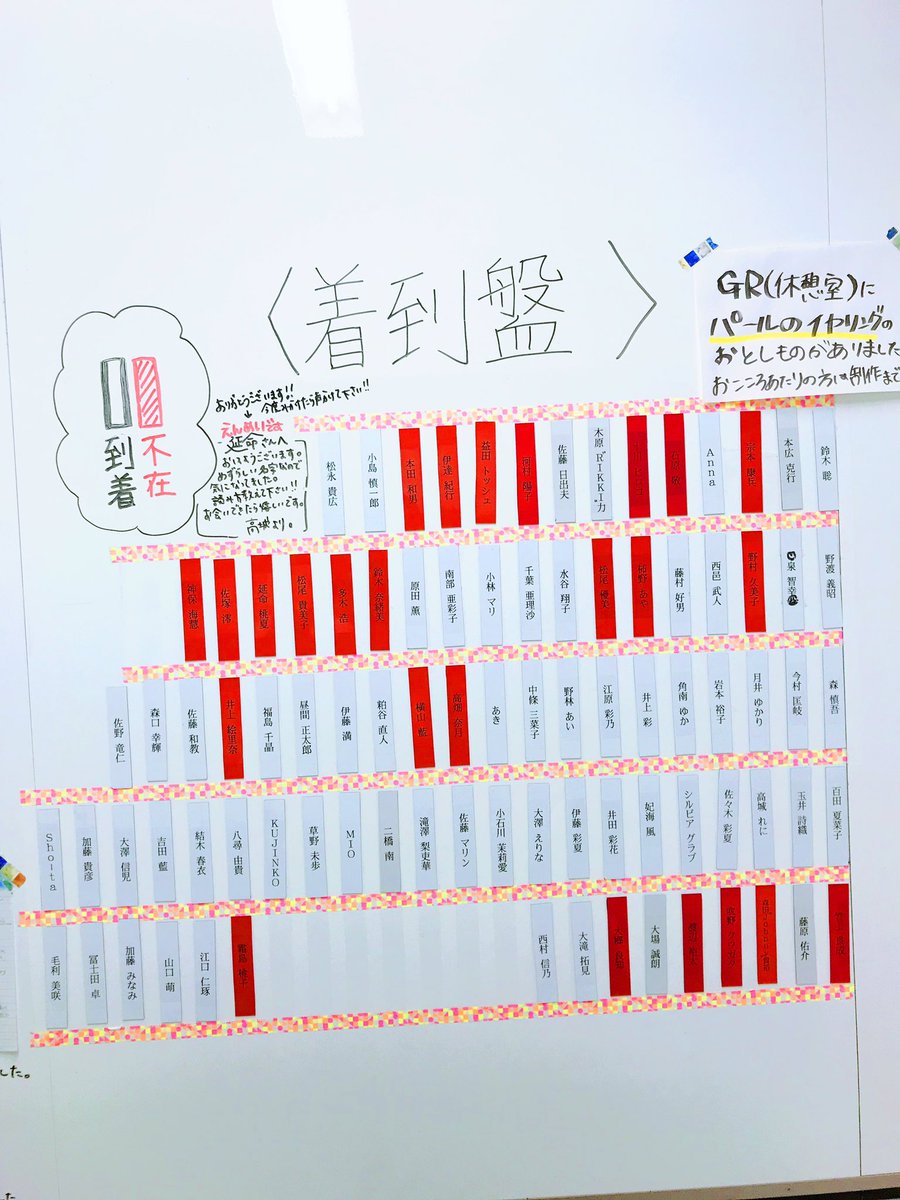 〈着到盤〉
GR(休憩室)に
パールのイヤリングの
おとしものがありました
おこころあたりの方は制作まで
不在
到着
ありがとうございます!!
今度みかけたら声かけて下さい!!
えんめいです
延命さんへ
おはようございます。
めずらしい名字なので
気になってました。
読み方教えて下さい!!
お会いできたら嬉しいです。
高城より。
鈴木 聡
本広 克行
Anna
木原 "RIKKI" 力
佐藤 日出夫
河村 陽子
益田 トッシュ
伊達 紀行
本田 和男
小島 慎一郎
松永 貴広
野渡 義昭
泉 智幸
野村 久美子
西邑 武人
藤村 好男
柿野 あや
松尾 優美
水谷 翔子
千葉 亜理沙
小林 マリ
南部 亜彩子
原田 薫
鈴木 奈緒美
多木 浩
松尾 貴美子
延命 桃夏
佐塚 澪
神保 海慧
森 慎吾
今村 匡岐
月井 ゆかり
岩本 裕子
角南 ゆか
井上 彩
江原 彩乃
野林 あい
中條 三菜子
あき
高畑 奈月
横山 藍
粕谷 直人
伊藤 満
昼間 正太郎
福島 千晶
井上 絵里奈
佐藤 和教
森口 幸輝
佐野 竜仁
百田 夏菜子
玉井 詩織
高城 れに
佐々木 彩夏
シルビア グラブ
妃海 風
井田 彩花
伊藤 彩夏
大澤 えりな
小石川 茉莉愛
佐藤 マリン
滝澤 梨吏華
二橋 南
MIO
草野 未歩
KUJINKO
八尋 由貴
結木 春衣
吉田 藍
大澤 信児
加藤 貴彦
Shoita
藤原 佑介
大場 誠朗
大滝 拓見
西村 信乃
霧島 桃子
江口 仁琢
山口 萌
加藤 みなみ
冨士田 卓
毛利 美咲
した。